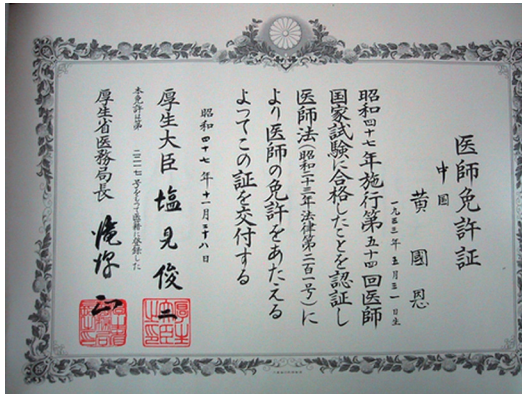 医師免許証
中国
黄國恩
一九三三年五月三一日生
昭和四十七年施行第五十四回医師
国家試験に合格したことを認証し
医師法(昭和二十三年法律第二百一号)に
より医師の免許をあたえる
よってこの証を交付する
昭和四十七年十一月二十八日
厚生大臣 塩見俊二
本免許は第
号をもって医籍に登録した
厚生省医務局長